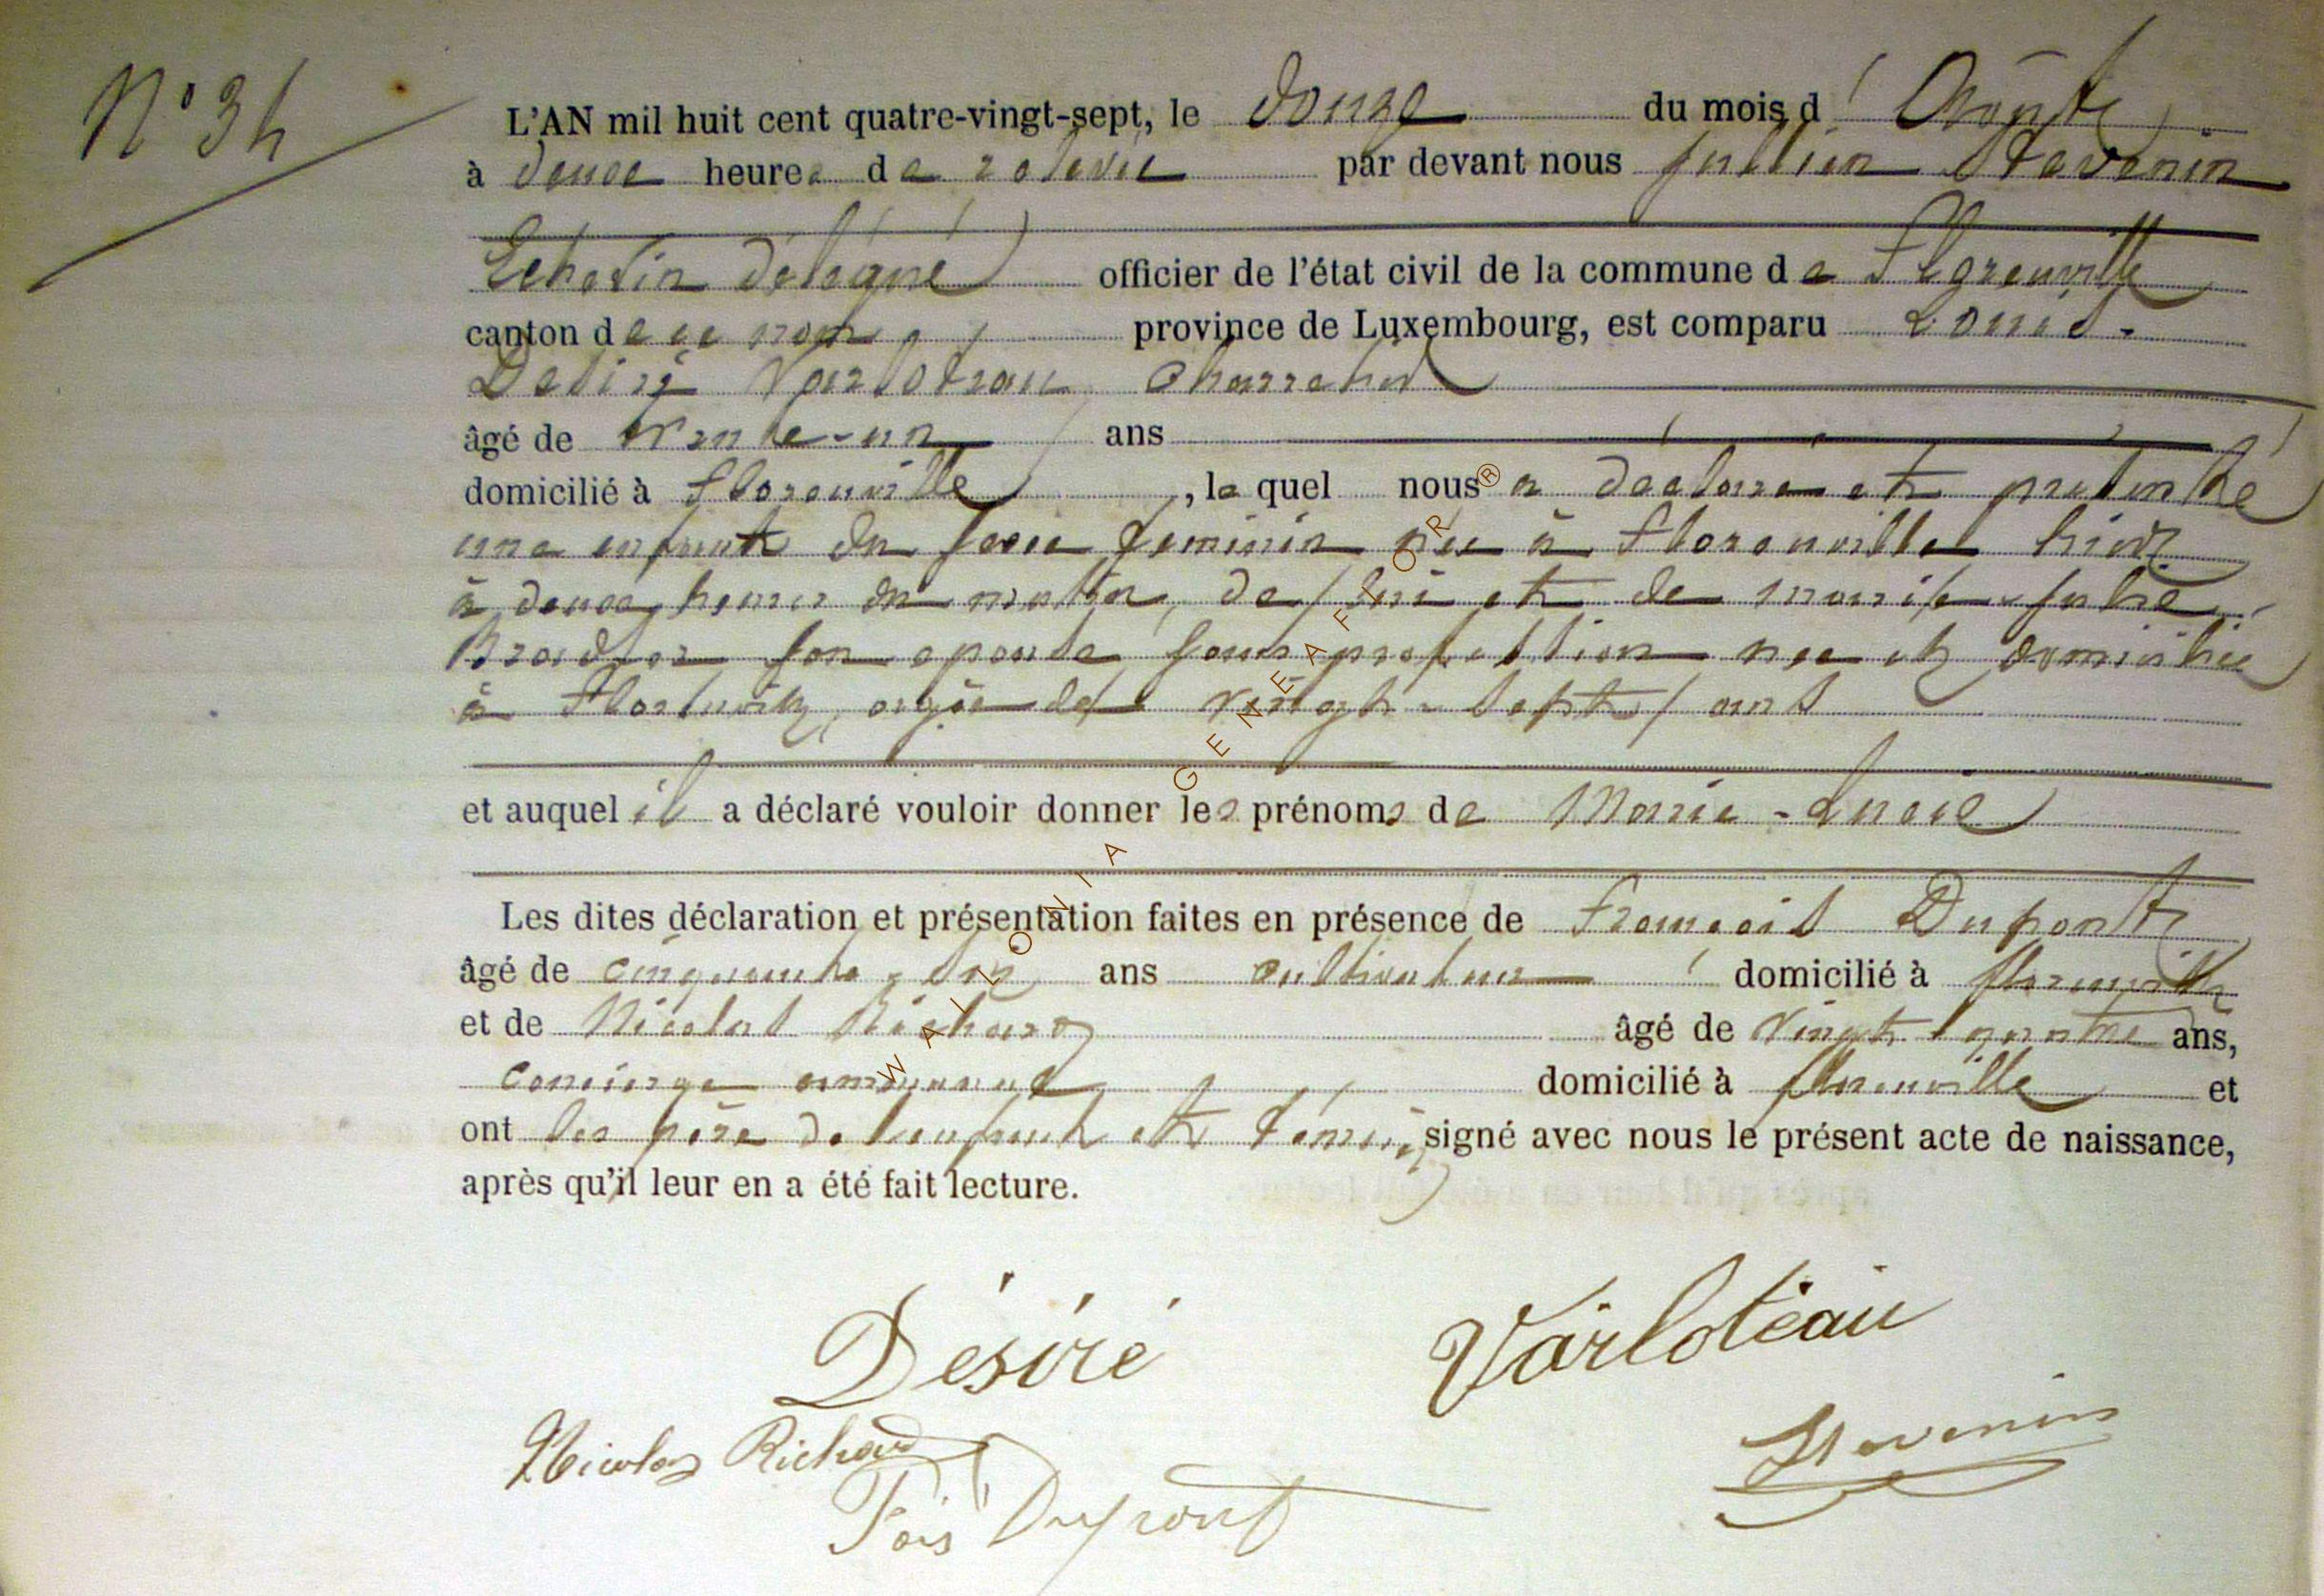 N° 34
L'AN mil huit cent quatre-vingt-sept, le douze du mois d' Août
à deux heures de relevée par devant nous Jullien Stevenin
Echevin délégué officier de l'état civil de la commune de Florenville
canton de ce nom, province de Luxembourg, est comparu Louis-
Désiré Varloteau, Charretier
âgé de trente-un ans
domicilié à Florenville, le quel nous a déclaré et présenté
une enfant du sexe feminin née à Florenville hier
à deux heures du matin, de lui et de Marie-Julie
son epouse sans profession née et domiciliée
à Florenville, agée de vingt-sept ans
et auquel il a déclaré vouloir donner les prénoms de Marie-Lucie
Les dites déclaration et présentation faites en présence de François Dupont
âgé de cinquante-six ans cultivateur domicilié à Florenville
et de Nicolas Richard âgé de vingt-quatre ans,
concierge domicilié à Florenville et
ont les père de l'enfant et témoins signé avec nous le présent acte de naissance,
après qu'il leur en a été fait lecture.
Désiré Varloteau
Nicolas Richard Stevenin
Fois Dupont
WALLONIA GENEAFLOR®